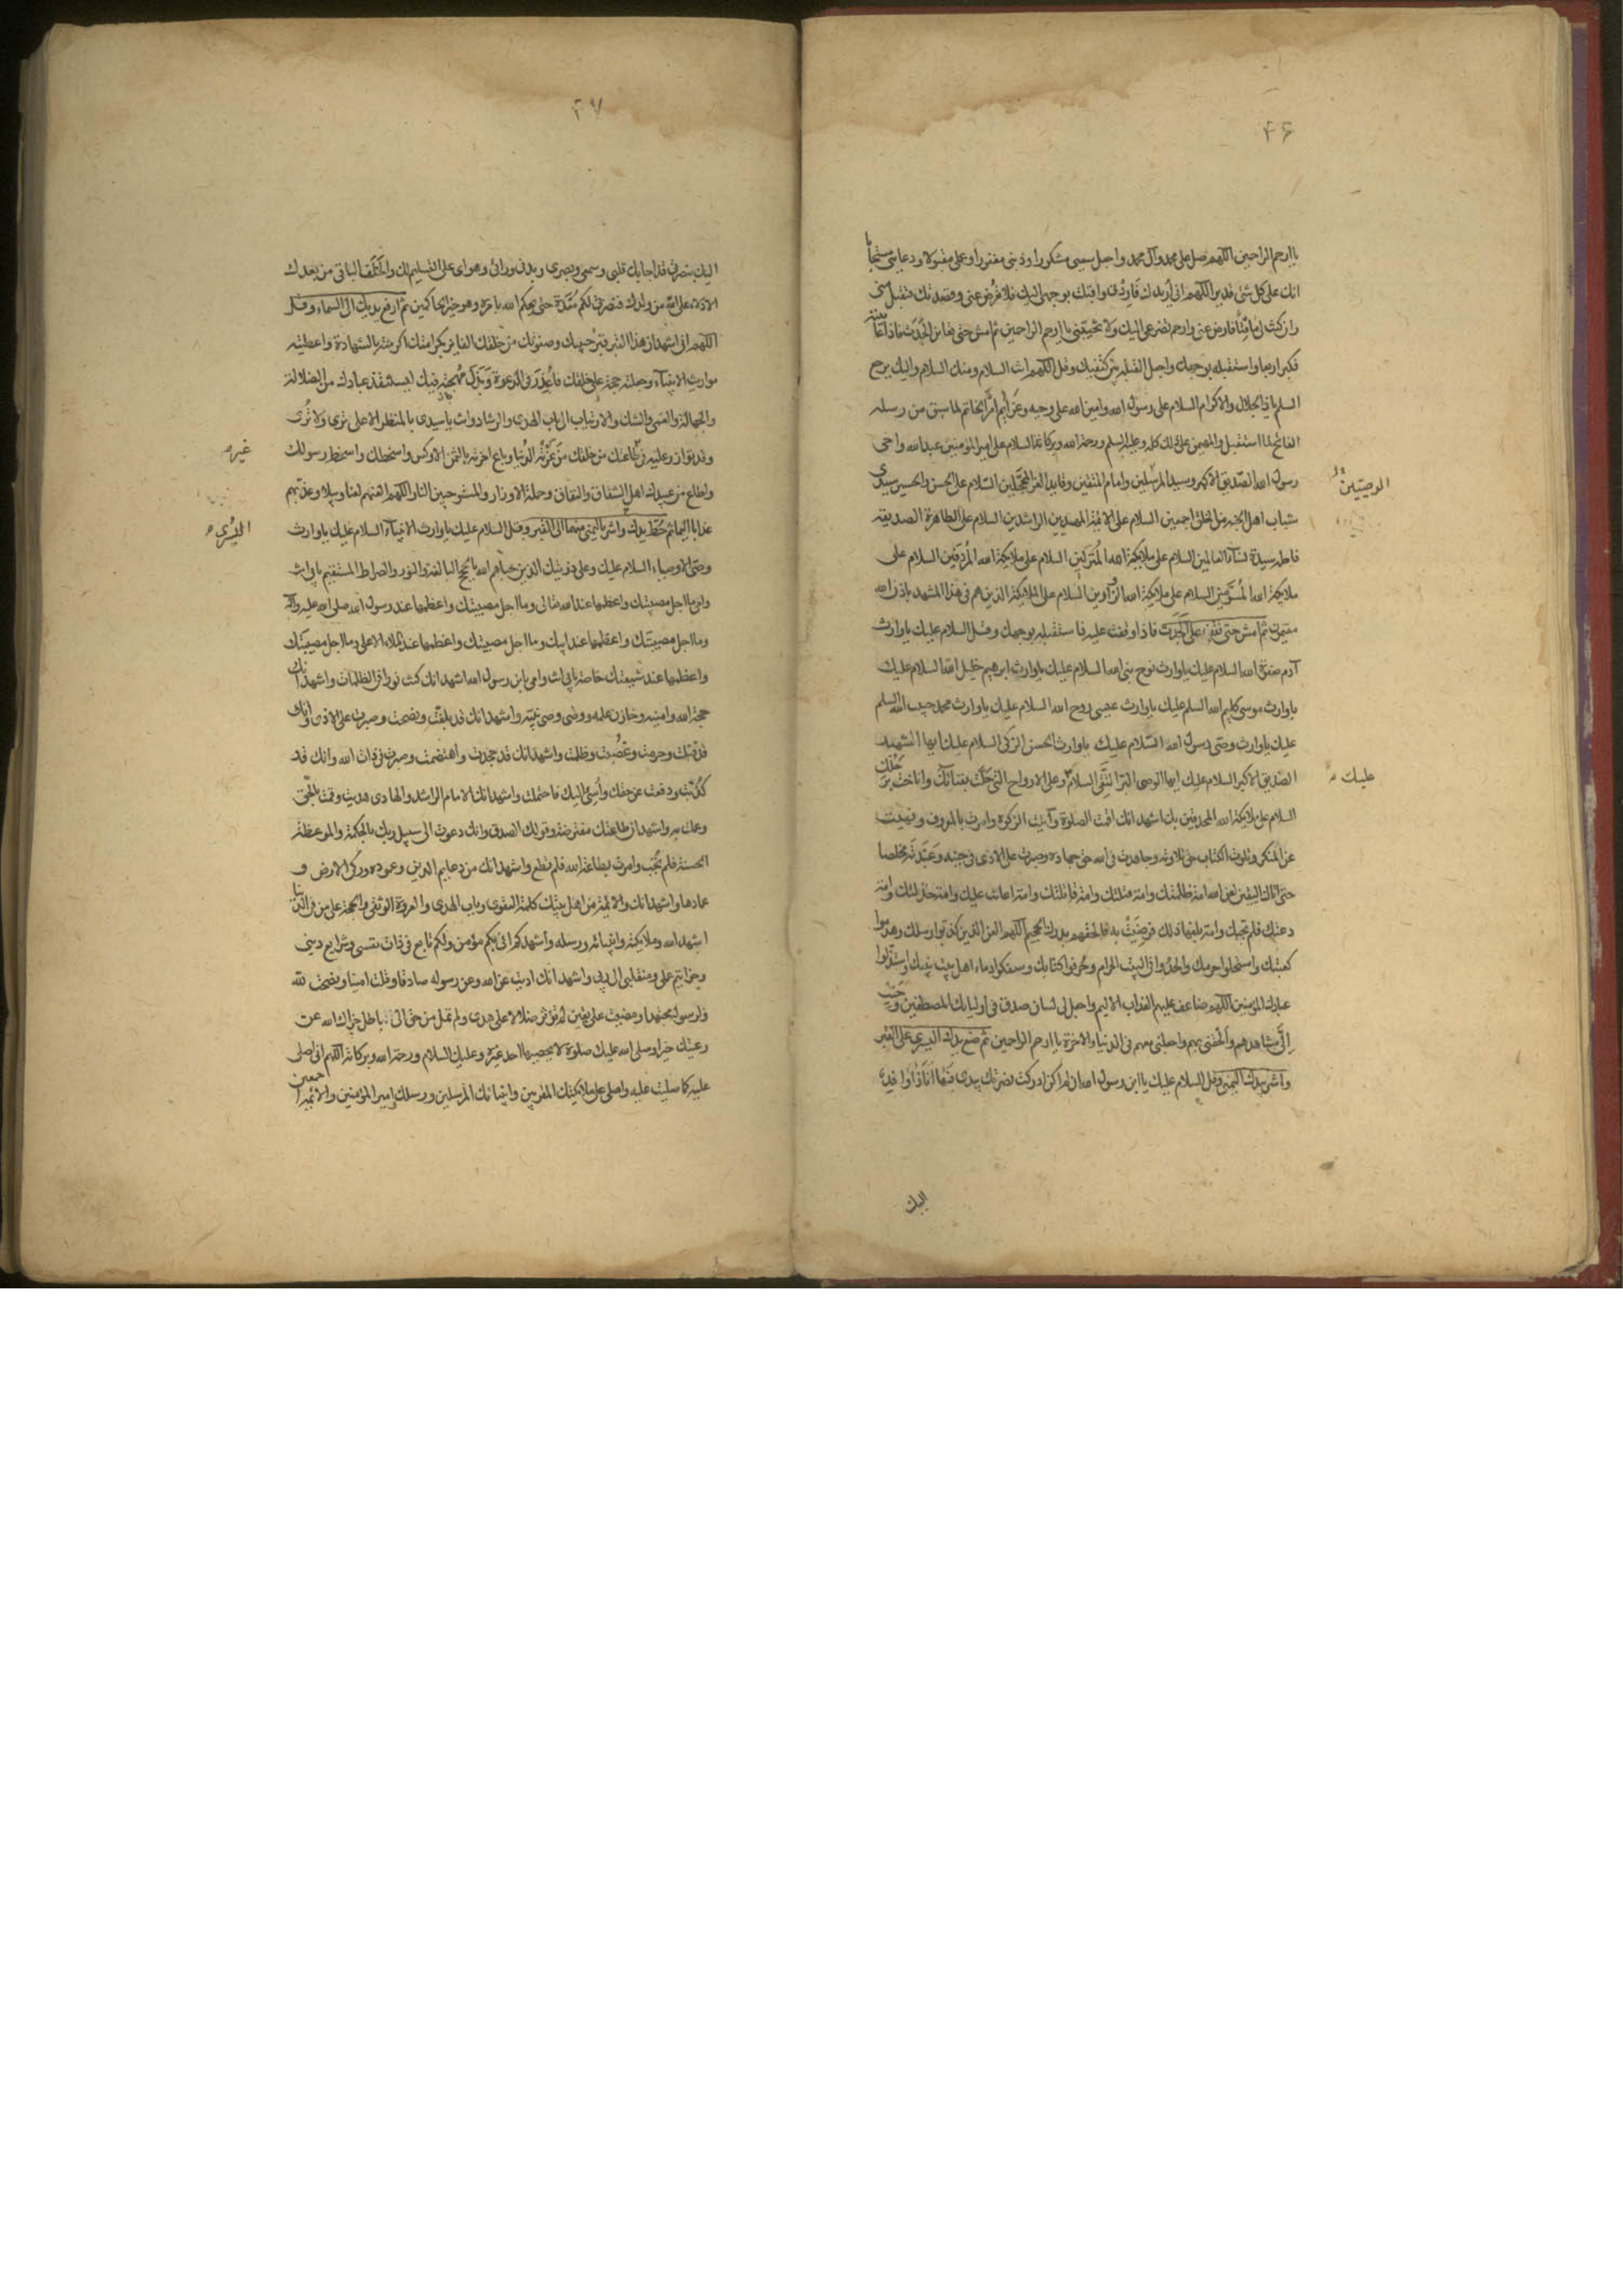 ۴۶
يا ارحم الراحمين اللهم صل على محمد وآل محمد واجعل سعيى مشكورا وذنبى مغفورا وعملى مقبولا ودعايى مستجابا
انك على كل شئ قدير اللهم انى اريدك فاردنى واقبلت بوجهى اليك فلا تعرض عنى وقصدتك فتقبل منى
وان كنت لى ماقتا فارض عنى وارحم تضرعى اليك ولا تخيبنى يا ارحم الراحمين ثم امش حتى تعاين الجدث فاذا عاينته
فكبر اربعا واستقبله بوجهك واجعل القبلة بين كتفيك وقل اللهم انت السلام ومنك السلام واليك يرجع
السلم ياذا الجلال والاكرام السلام على رسول الله وامين الله على وحيه وعزايم امره الخاتم لما سبق من رسله
الفاتح لما استقبل والمهيمن على ذلك كله وعليه السلم ورحمة الله وبركاته السلام على امير المؤمنين عبد الله واخى
رسول الله الصديق الاكبر وسيد المرسلين وامام المتقين وقايد الغر المحجلين السلام على الحسن والحسين سيدى
الوصيين
شباب اهل الجنة من الخلق اجمعين السلام على الائمة المهديين الراشدين السلام على الطاهرة الصديقة
فاطمة سيدة نسآء العالمين السلام على ملايكة الله المنزلين السلام على ملايكة الله المردفين السلام على
ملايكة الله المسومين السلام على ملايكة الله الزوارين السلام على الملايكة الذين هم فى هذا المشهد باذن الله
مقيمون ثم امش حتى تقف على الجدث فاذا وقفت عليه فاستقبله بوجهك وقل السلام عليك ياوارث
آدم صفوة الله السلام عليك ياوارث نوح نبى الله السلام عليك ياوارث ابرهيم خليل الله السلام عليك
ياوارث موسى كليم الله السلم عليك ياوارث عيسى روح الله السلام عليك ياوارث محمد حبيب الله السلم
عليك ياوارث وصى رسول الله السلام عليك ياوارث الحسن الزكى السلام عليك ايها الشهيد
الصديق الاكبر السلام عليك ايها الوصى البر التقى السلام وعلى الارواح التى حلت بفنائك واناخت برحلك
عليك
السلام على ملايكة الله المحدقين بك اشهد انك اقمت الصلوة وآتيت الزكوة وامرت بالمعروف ونهيت
عن المنكر وتلوت الكتاب حق تلاوته وجاهدت فى الله حق جهاده وصبرت على الاذى فى جنبه وعبدته مخلصا
حتى اتاك اليقين لعن الله امة ظلمتك وامة قتلتك وامة قاتلتك وامة اعانت عليك وامة خذلتك وامة
دعتك فلم تجبك وامة بلغها ذلك فرضيت به فالحقهم بدرك الجحيم اللهم العن الذين كذبوا رسلك وهدموا
كعبتك واستحلوا حرمك والحدوا فى البيت الحرام وحرفوا كتابك وسفكوا دماء اهل بيت نبيك واستذلوا
عبادك المؤمنين اللهم ضاعف عليهم العذاب الاليم واجعل لى لسان صدق فى اوليائك المصطفين وحبب
الى مشاهدهم والحقنى بهم واجعلنى معهم فى الدنيا والآخرة يا ارحم الراحمين ثم ضع يدك اليسرى على القبر
واشر بيدك اليمنى وقل السلام عليك ياابن رسول الله ان لم اكن ادركت نصرتك بيدى فها انا ذا وافد
اليك
۴۷
اليك بنصرتى قد اجابك قلبى وسمعى وبصرى وبدنى ورائى وهواى على التسليم لك والخلف الباقى من بعدك
الادلاء على الله من ولدك فنصرتى لكم معدة حتى يحكم الله بامره وهو خير الحاكمين ثم ارفع يديك الى السماء وقل
اللهم انى اشهد ان هذا القبر قبر حبيبك وصفوتك من خلقك الفايز بكرامتك اكرمته بالشهادة واعطيته
مواريث الانبيآء وجعلته حجة على خلقك فاعذر فى الدعوة وبذل مهجته فيك ليستنقذ عبادك من الضلالة
والجهالة والعمى والشك والارتياب الى باب الهدى والرشاد وانت ياسيدى بالمنظر الاعلى ترى ولا ترى
وقد توازر عليه فى طاعتك من خلقك من غرته الدنيا وباع اخرته بالثمن الاوكس واسخطك واسخط رسولك
غيره
واطاع من عبيدك اهل الشقاق والنفاق وحملة الاوزار والمستوجبين النار اللهم العنهم لعنا وبيلا وعذبهم
عذابا اليما ثم حط يدك واشر باليمنى منها الى القبر وقل السلام عليك ياوارث الانبيآء السلام عليك ياوارث
اليسرى
وصى الاوصياء السلام عليك وعلى ذريتك الذين حباهم الله بالحجج البالغة والنور والصراط المستقيم بابى انت
وامى ما اجل مصيبتك واعظمها عند الله تعالى وما اجل مصيبتك واعظمها عند رسول الله صلى الله عليه وآله
وما اجل مصيبتك واعظمها عند ابيك وما اجل مصيبتك واعظمها عند الملاء الاعلى وما اجل مصيبتك
واعظمها عند شيعتك خاصة بابى انت وامى يابن رسول الله اشهد انك كنت نورا فى الظلمات واشهد انك
حجة الله وامينه وخازن علمه ووصى وصى نبيه واشهد انك قد بلغت ونصحت وصبرت على الاذى وانك
قد قتلت وحرمت وغصبت وظلمت واشهد انك قد جحدت واهتضمت وصبرت فى ذات الله وانك قد
كذبت ودفعت عن حقك واسئ اليك فاحتملت واشهد انك الامام الراشد والهادى هديت وقمت بالحق
وعملت به واشهد ان طاعتك مفترضة وقولك الصدق وانك دعوت الى سبيل ربك بالحكمة والموعظة
الحسنة فلم تجب وامرت بطاعة الله فلم تطع واشهد انك من دعايم الدين وعموده وركن الارض و
عمادها واشهد انك والائمة من اهل بيتك كلمة التقوى وباب الهدى والعروة الوثقى والحجة على من فى الدنيا
اشهد الله وملايكته وانبيائه ورسله واشهدكم انى بكم مؤمن ولكم تابع فى ذات نفسى وشرايع دينى
وخواتيم عملى ومنقلبى الى ربى واشهد انك اديت عن الله وعن رسوله صادقا وقلت امينا ونصحت لله
ولرسوله مجتهدا ومضيت على يقين لم تؤثر ضلالا على هدى ولم تمل من حق الى باطل جزاك الله عن
رعيتك خيرا وصلى الله عليك صلوة لا يحصيها احد غيره وعليك السلام ورحمة الله وبركاته اللهم انى اصلى
عليه كما صليت عليه واصلى على ملائكتك المقربين وانبيائك المرسلين ورسلك وامير المؤمنين والائمة اجمعين